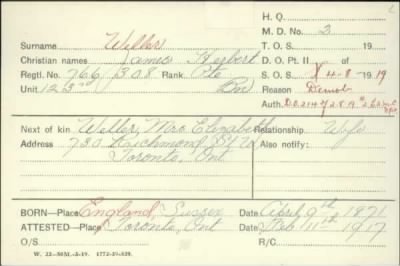 H. Q.
M. D. No. 2
Surname Weller T. O. S. 19
Christian names James Herbert D. O. Pt. II of
Regtl. No. 766,308 Rank. Pte S. O. S. 4-8-1919
Unit 123rd Bn Reason Demob
Auth. D.O.214
Next of kin Weller, Mrs Elizabeth Relationship. Wife
Address 730 Richmond St W Also notify:
Toronto, Ont
BORN—Place England, Sussex Date April 9th 1871
ATTESTED—Place Toronto, Ont Date Feb. 11th 1917
O/S R/C
W. 22—50M.-3-19. 1772-39-839.